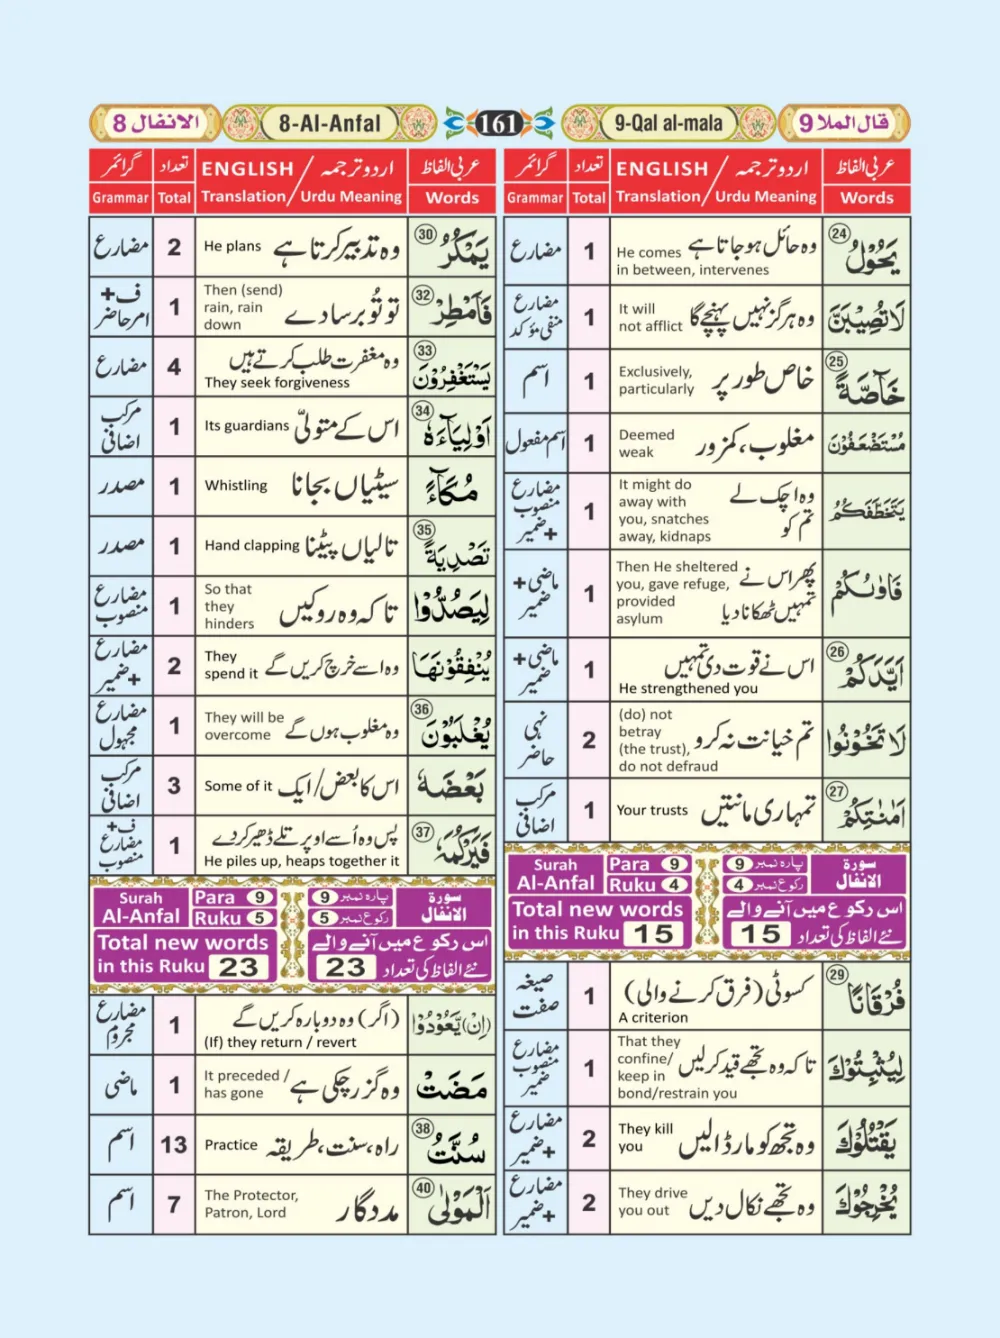 الانفال 8
8-Al-Anfal
161
9-Qal al-mala
قال الملا 9
عربی الفاظ
اردو ترجمہ / ENGLISH
تعداد
گرائمر
Words
Translation / Urdu Meaning
Total
Grammar
يَحُوْلُ ㉔
وہ حائل ہوجاتا ہے
He comes
in between, intervenes
1
مضارع
لَا تُصِيْبَنَّ
وہ ہرگز نہیں پہنچے گا
It will
not afflict
1
مضارع
منفی مؤکد
خَآصَّةً ㉕
خاص طور پر
Exclusively,
particularly
1
اسم
مُسْتَضْعَفُوْنَ
مغلوب، کمزور
Deemed
weak
1
اسم مفعول
يَتَخَطَّفَكُمُ
وہ اچک لے
تم کو
It might do
away with
you, snatches
away, kidnaps
1
مضارع
منصوب
+ضمیر
فَاٰوٰىكُمْ
پھر اس نے
تمہیں ٹھکانا دیا
Then He sheltered
you, gave refuge,
provided
asylum
1
ماضی+
ضمیر
اَيَّدَكُمْ ㉖
اس نے قوت دی تمہیں
He strengthened you
1
ماضی+
ضمیر
لَا تَخُوْنُوا
تم خیانت نہ کرو
(do) not
betray
(the trust),
do not defraud
2
نہی
حاضر
اَمٰنٰتِكُمْ ㉗
تمہاری مانتیں
Your trusts
1
مرکب
اضافی
Surah
Al-Anfal
Para 9
Ruku 4
پارہ نمبر 9
رکوع نمبر 4
سورة
الانفال
Total new words
in this Ruku 15
اس رکوع میں آنے والے
نئے الفاظ کی تعداد 15
فُرْقَانًا ㉙
کسوٹی (فرق کرنے والی)
A criterion
1
صیغہ
صفت
لِيُثْبِتُوْكَ
تاکہ وہ تجھے قید کر لیں
That they
confine/
keep in
bond/restrain you
1
مضارع
منصوب
ضمیر
يَقْتُلُوْكَ
وہ تجھ کو مار ڈالیں
They kill
you
2
مضارع
+ضمیر
يُخْرِجُوْكَ
وہ تجھے نکال دیں
They drive
you out
2
مضارع
+ضمیر
عربی الفاظ
اردو ترجمہ / ENGLISH
تعداد
گرائمر
Words
Translation / Urdu Meaning
Total
Grammar
يَمْكُرُ ㉚
وہ تدبیر کرتا ہے
He plans
2
مضارع
فَاَمْطِرْ ㉜
تو تُو برسا دے
Then (send)
rain, rain
down
1
ف+
امر حاضر
يَسْتَغْفِرُوْنَ ㉝
وہ مغفرت طلب کرتے ہیں
They seek forgiveness
4
مضارع
اَوْلِيَآءَهٗ ㉞
اس کے متولیّ
Its guardians
1
مرکب
اضافی
مُكَآءً
سیٹیاں بجانا
Whistling
1
مصدر
تَصْدِيَةً ㉟
تالیاں پیٹنا
Hand clapping
1
مصدر
لِيَصُدُّوْا
تاکہ وہ روکیں
So that
they
hinders
1
مضارع
منصوب
يُنْفِقُوْنَهَا
وہ اسے خرچ کریں گے
They
spend it
2
مضارع
+ضمیر
يُغْلَبُوْنَ ㊱
وہ مغلوب ہوں گے
They will be
overcome
1
مضارع
مجہول
بَعْضَهٗ
اس کا بعض/ایک
Some of it
3
مرکب
اضافی
فَيَرْكُمَهٗ ㊲
پس وہ اُسے اوپر تلے ڈھیر کر دے
He piles up, heaps together it
1
ف+
مضارع
منصوب
Surah
Al-Anfal
Para 9
Ruku 5
پارہ نمبر 9
رکوع نمبر 5
سورة
الانفال
Total new words
in this Ruku 23
اس رکوع میں آنے والے
نئے الفاظ کی تعداد 23
(اِنْ) يَّعُوْدُوْا
(اگر) وہ دوبارہ کریں گے
(If) they return / revert
1
مضارع
مجزوم
مَضَتْ
وہ گزر چکی ہے
It preceded /
has gone
1
ماضی
سُنَّتُ ㊳
راہ، سنت، طریقہ
Practice
13
اسم
اَلْمَوْلٰى ㊵
مددگار
The Protector,
Patron, Lord
7
اسم